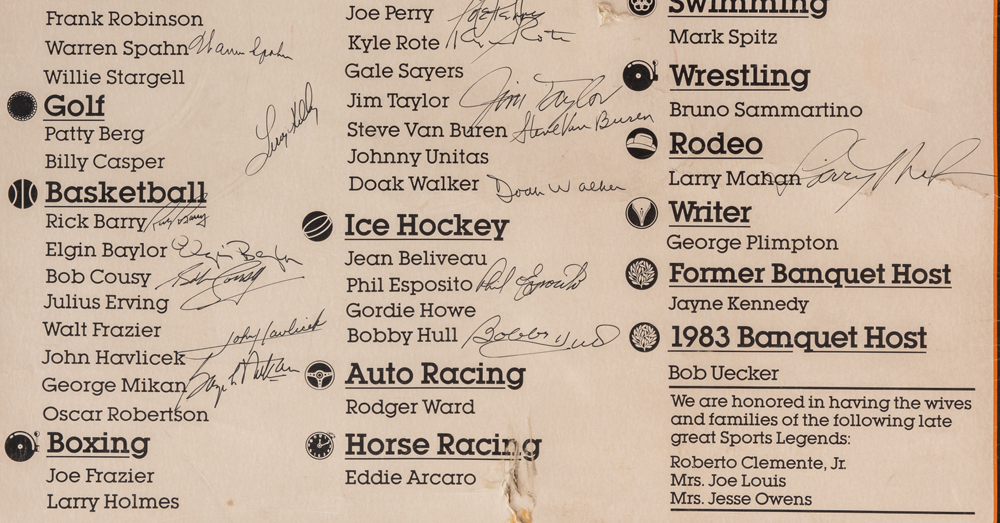 Frank Robinson
Warren Spahn Warren Spahn
Willie Stargell
Golf
Patty Berg
Billy Casper
Basketball
Rick Barry Rick Barry
Elgin Baylor Elgin Baylor
Bob Cousy Bob Cousy
Julius Erving
Walt Frazier
John Havlicek John Havlicek
George Mikan George Mikan
Oscar Robertson
Boxing
Joe Frazier
Larry Holmes
Joe Perry Joe Perry
Kyle Rote Kyle Rote
Gale Sayers
Jim Taylor Jim Taylor
Steve Van Buren Steve Van Buren
Johnny Unitas
Doak Walker Doak Walker
Ice Hockey
Jean Beliveau
Phil Esposito Phil Esposito
Gordie Howe
Bobby Hull Bobby Hull
Auto Racing
Rodger Ward
Horse Racing
Eddie Arcaro
Swimming
Mark Spitz
Wrestling
Bruno Sammartino
Rodeo
Larry Mahan Larry Mahan
Writer
George Plimpton
Former Banquet Host
Jayne Kennedy
1983 Banquet Host
Bob Uecker
We are honored in having the wives
and families of the following late
great Sports Legends:
Roberto Clemente, Jr.
Mrs. Joe Louis
Mrs. Jesse Owens